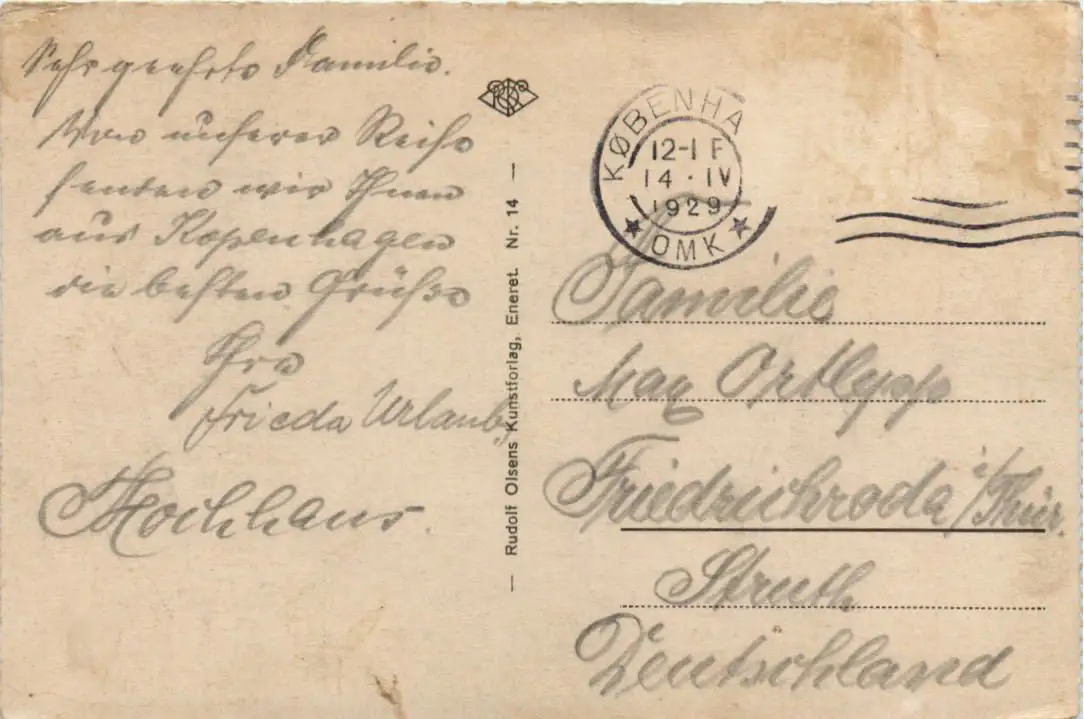 Sehr geehrte Familie.
Von unserer Reise
senden wir Ihnen
aus Kopenhagen
die besten Grüße
Ihre
Frieda Urlaub
Hochhaus.
— Rudolf Olsens Kunstforlag, Eneret. Nr. 14 —
KØBENHA
12-1 F
14 · IV
1929
★ OMK ★
Familie
Max Ortlepp
Friedrichroda i/Thür.
Struth
Deutschland